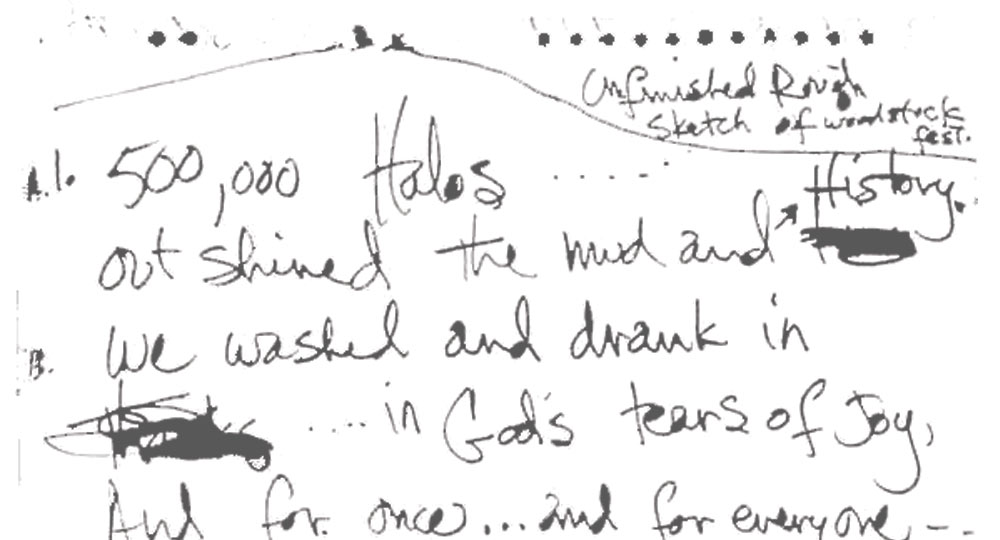 Unfinished Rough
sketch of woodstock
fest.
A.1. 500,000 Halos ......
History.
out shined the mud and
B. We washed and drank in
....in God's tears of Joy,
And for once...and for everyone, --.